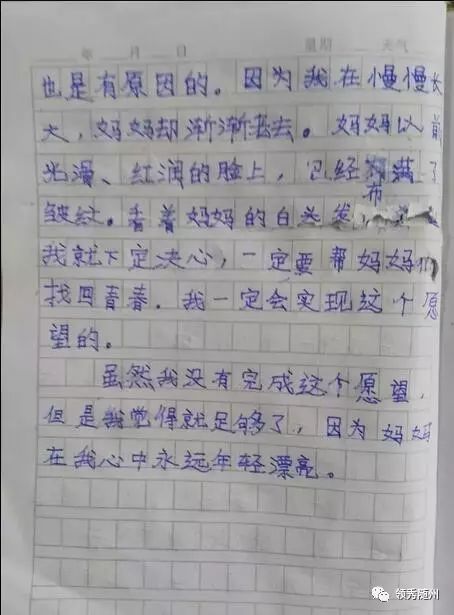 年 月 日 星期 天气
也是有原因的。因为我在慢慢长
大，妈妈却渐渐老去。妈妈以前
光滑、红润的脸上，已经布满了
皱纹。看着妈妈的白头发，
我就下定决心，一定要帮妈妈们
找回青春．我一定会实现这个愿
望的。
虽然我没有完成这个愿望，
但是我觉得就足够了，因为妈妈
在我心中永远年轻漂亮。
领秀随州